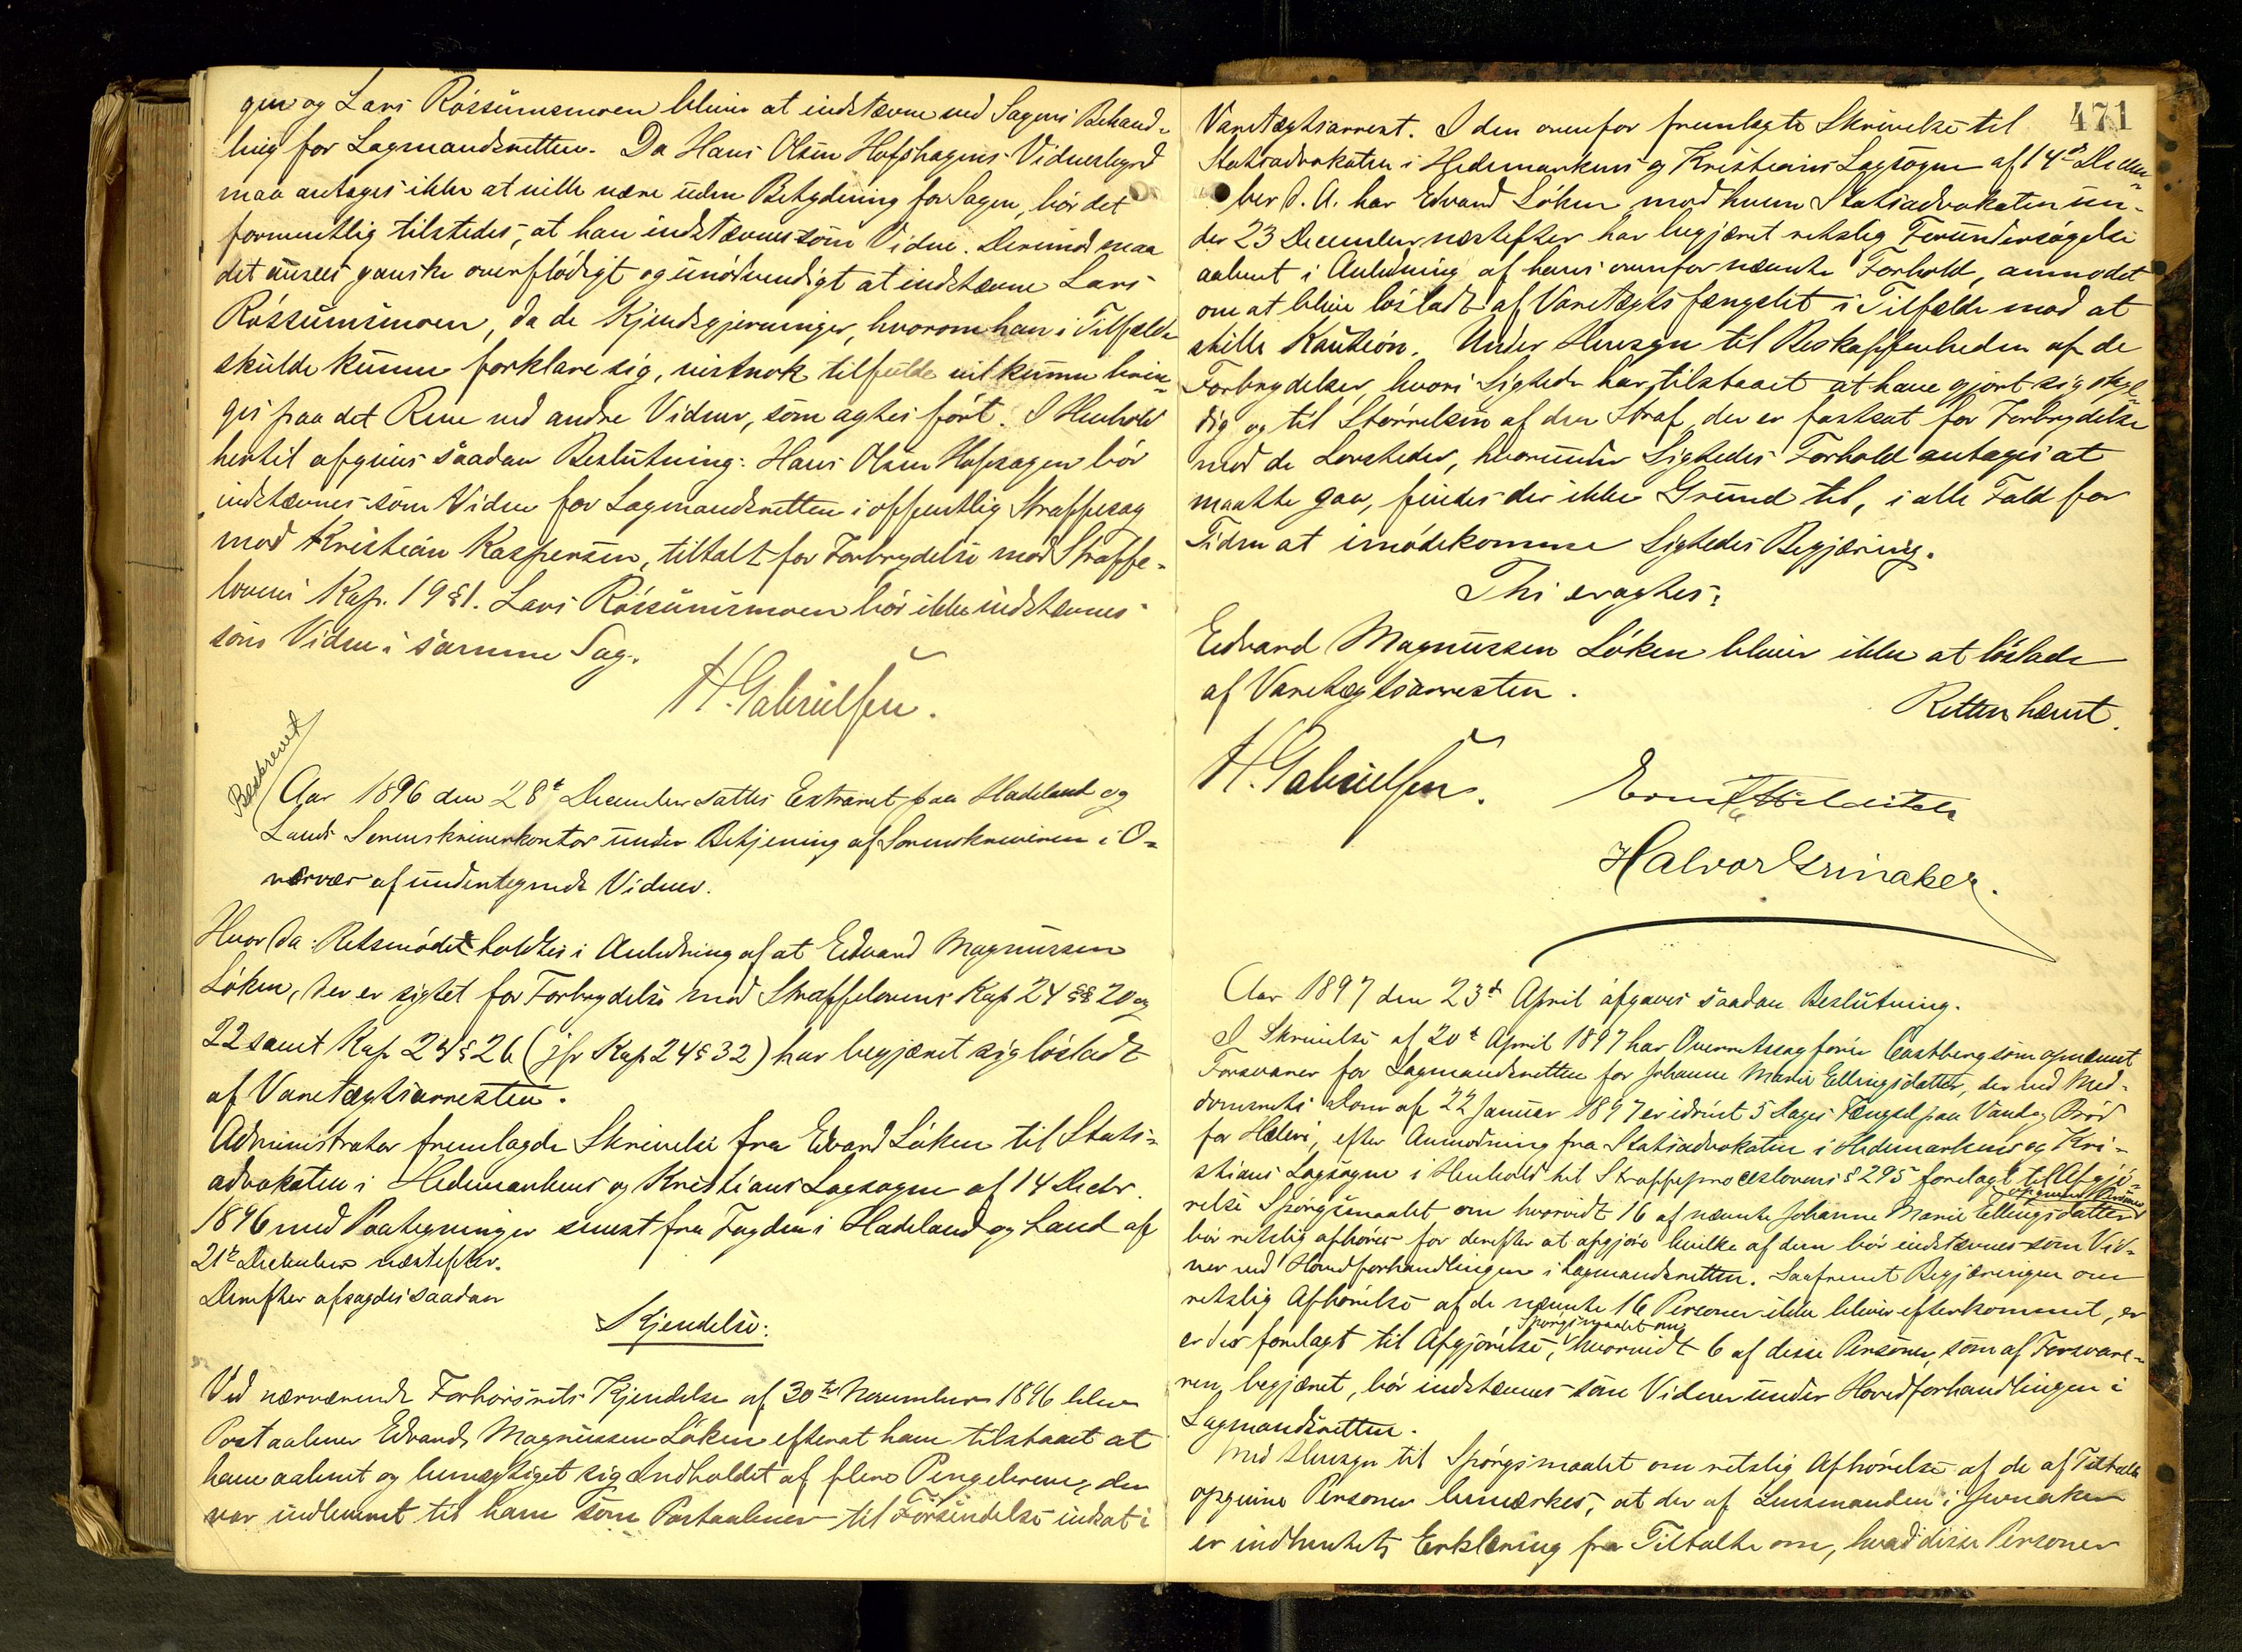 gen og Lars Rössumsmoen bliver at indstævne ved Sagens Behand-
ling for Lagmandsretten. Da Hans Olsen Hofshagens Vidnesbyrd
maa antages ikke at ville være uden Betydning for Sagen, bör det
formentlig tilstedes, at han indstævnes som Vidne. Derimod maa
det ansees ganske overflödigt og unödvendigt at indstævne Lars
Rössumsmoen, da de Kjendsgjerninger, hvorom han i Tilfælde
skulde kunne forklare sig, vistnok tilfulde vil kunne brin-
ges paa det Rene ved andre Vidner, som agtes fört. I Henhold
hertil afgives saadan Beslutning: Hans Olsen Hofsagen bör
indstævnes som Vidne for Lagmandsretten i offentlig Straffesag
mod Kristian Kaspersen, tiltalt for Forbrydelse mod Straffe-
lovens Kap. 19 § 1. Lars Rössumsmoen bör ikke indstævnes
som Vidne i samme Sag.
H. Gabrielsen.
Beskrevet
Aar 1896 den 28d December sattes Extraret paa Hadeland og
Lands Sorenskriverkontor under Betjening af Sorenskriveren i O-
vervær af undertegnede Vidner.
Hvor da: Retsmödet holdtes i Anledning af at Edvard Magnussen
Löken, der er sigtet for Forbrydelse mod Straffelovens Kap 24 §§ 20 og
22 samt Kap 24 § 26 (jfr Kap 24 § 32) har begjæret sig lösladt
af Varetægtsarresten.
Administrator fremlagde Skrivelse fra Edvard Löken til Stats-
advokaten i Hedemarkens og Kristians Lagsogne af 14 Decbr.
1896 med Paategninger senest fra Fogden i Hadeland og Land af
21de December næstefter.
Derefter afsagdes saadan
Kjendelse:
Ved nærværende Forhörsrets Kjendelse af 30te November 1896 blev
Postaabner Edvard Magnussen Löken efterat have tilstaaet at
have aabnet og bemægtiget sig Indholdet af flere Pengebreve, der
var indleveret til ham som Postaabner til Forsendelse indsat i
471
Varetægtsarrest. I den ovenfor fremlagte Skrivelse til
Statsadvokaten i Hedemarkens og Kristians Lagsogne af 14de Decem-
ber d. A. har Edvard Löken mod hvem Statsadvokaten un-
der 23 December næstefter har begjæret retslig Forundersögelse
aabnet i Anledning af hans ovenfor nævnte Forhold, anmodet
om at blive lösladt af Varetægtsfængslet i Tilfælde mod at
stille Kaution. Under Hensyn til Beskaffenheden af de
Forbrydelser, hvori Sigtede har tilstaaet at have gjort sig skyl-
dig og til Störrelsen af den Straf, der er fastsat for Forbrydelse
mod de Lovsteder, hvorunder Sigtedes Forhold antages at
maatte gaa, findes der ikke Grund til, i alle Fald for
Tiden at imödekomme Sigtedes Begjæring.
Thi eragtes:
Edvard Magnussen Löken bliver ikke at löslade
af Varetægtsarresten.
Retten hævet.
H. Gabrielsen.
Halvor Grinaker.
Aar 1897 den 23d April afgaves saadan Beslutning.
I Skrivelse af 20d April 1897 har Overretssagförer Castberg som opnævnt
Forsvarer for Lagmandsretten for Johanne Marie Ellingsdatter, der ved Med-
domsrets Dom af 22 Januar 1897 er idömt 5 Dages Fængsel paa Vand og Bröd
for Hæleri, efter Anmodning fra Statsadvokaten i Hedemarkens og Kri-
stians Lagsogne i Henhold til Straffeproceslovens § 295 forelagt til Afgjö-
relse Spörgsmaalet om hvorvidt 16 af nævnte Johanne Marie Ellingsdatter opgivne Personer
bör retslig afhöres for derefter at afgjöre hvilke af dem bör indstævnes som Vid-
ner ved Hovedforhandlingen i Lagmandsretten. Saafremt Begjæringen om
retslig Afhörelse af de nævnte 16 Personer ikke bliver efterkommet, er
er der forelagt til Afgjörelse, Spörgsmaalet om hvorvidt 6 af disse Personer, som af Forsvare-
ren begjæret, bör indstævnes som Vidner under Hovedforhandlingen i
Lagmandsretten.
Med Hensyn til Spörgsmaalet om retslig Afhörelse af de af Tiltalte
opgivne Personer bemærkes, at der af Lensmanden i Jevnaker
er indhentet Erklæring fra Tiltalte om, hvad disse Personer